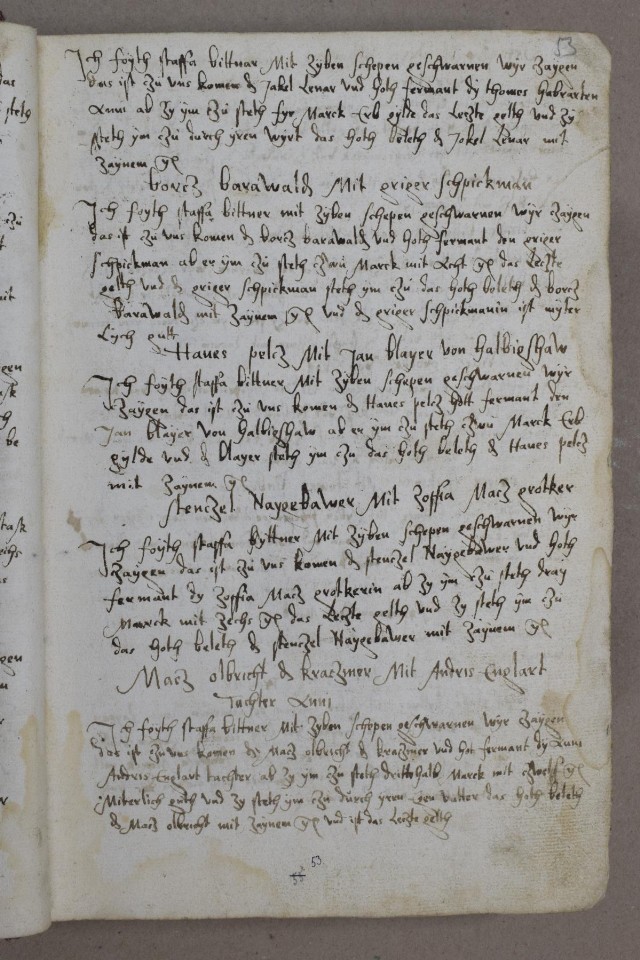 53
Ich foyth staffa bittnar Mit zyben schepen geschwarnen wyr zaygen
das ist czu vns komen d Jakel Lenar vnd hoth fermant dy thomes habrarten
Anni ab zy ym czu steth fyr Marck Erb gylde das Leczte gelth vnd zy
steth ym czu durch yren wyrt das hoth beleth d Jokel Lenar mit
zaynem g
borcz barawald Mit griger schpickman
Ich foyth staffa bittner mit zyben schepen geschwarnen wyr zaygen
das ist czu vns komen d borcz barawald vnd hoth fermant den griger
schpickman ab er ym czu steth czwu Marck mit Acht g das Leczte
gelth vnd d griger schpickman steth ym czu das hoth beleth d borcz
barawald mit zaynem g vnd d griger schpickmanin ist myter
Lych gutt
Hanes pelcz Mit Jan blayer von halbigshaw
Ich foyth staffa bittner Mit zyben schepen geschwarnen wyr
zaygen das ist czu vns komen d Hanes pelcz hott fermant den
Jan blayer von halbigshaw ab er ym czu steth czwu Marck Erb
gylde vnd d blayer steth ym czu das hoth beleth d Hanes pelcz
mit zaynem g
stenczel Naygebawer Mit zoffia Macz grotker
Ich foyth staffa byttner Mit zyben schepen geschwarnen wyr
zaygen das ist czu vns komen d stenczel Naygebawer vnd hoth
fermant dy zoffia Macz grotkerin ab zy ym czu steth dray
Marrck mit zechs g das Leczte gelth vnd zy steth ym czu
das hoth beleth d stenczel Naygebawer mit zaynem g
Macz olbricht d kraczmer Mit Andris Englart
tachter Anni
Ich foyth staffa bittner Mit zyben schepen geschwarnen wyr zaygen
das ist czu vns komen d Macz olbricht d kraczmer vnd hot fermant dy Anni
Andris Englart tachter ab zy ym czu steth dritthalb Marck mit czwelf g
Miterlich guth vnd zy steth ym czu durch yren vatter das hoth beleth
d Macz olbricht mit zaynem g vnd ist das Leczte gelth
53